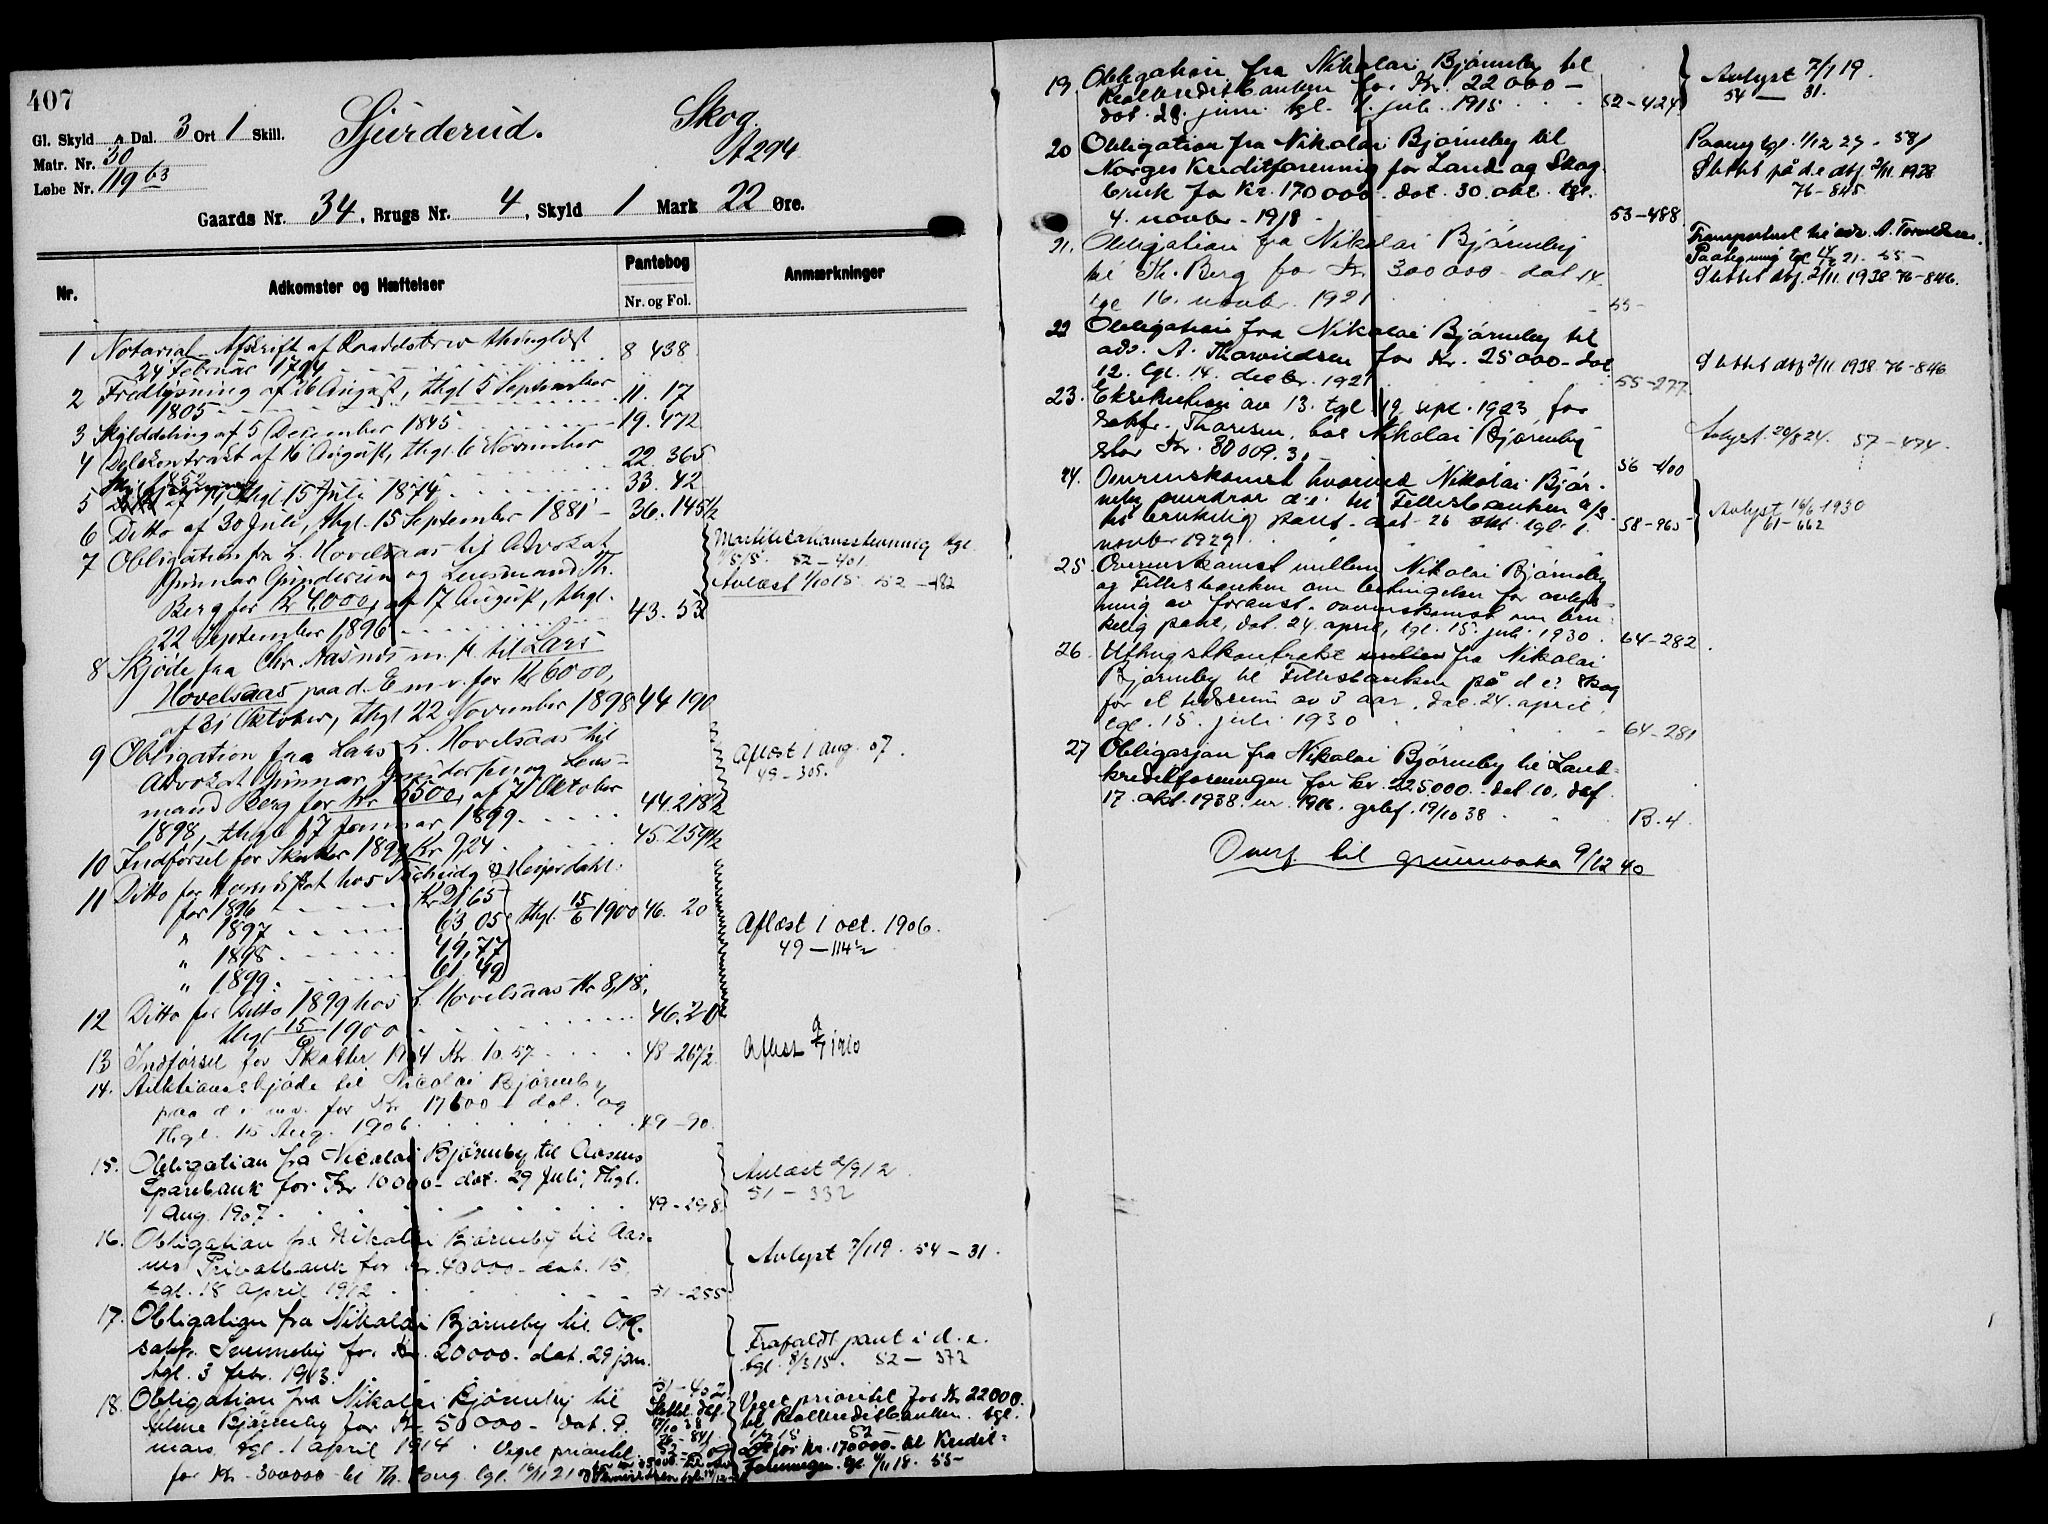 407
Gl. Skyld Dal. 3 Ort 1 Skill.
Matr. Nr. 30
Løbe Nr. 119 63
Sjurderud.
Skog.
A 294
Gaards Nr. 34, Brugs Nr. 4, Skyld 1 Mark 22 Øre.
Nr.
Adkomster og Hæftelser
Pantebog
Nr. og Fol.
Anmærkninger
1 Notarial-Afskrift af thinglæst
24 Februar 8 438
2 Fredlysning af 26 August, thgl 5 September
1805 11. 17
3 Skylddeling af 5 December 1845 19. 472
4 Delekontrakt af 16 August, thgl. 6 November
1852 22. 365
5 thgl 15 Juli 1874 33. 42
6 Ditto af 30 Juli, thgl. 15 September 1881 36. 145½
7 Obligation fra L. Hovelsaas til Advokat
Gunnar Gundersen og Lensmand Th.
Berg for Kr 4000, af 17 August, thgl.
22 September 1896 43. 53
Mortifikationsstevning tgl.
52 – 401
Avlæst 1/10 15 52 – 482
8 Skjøde fra Chr. Aasnes m. fl. til Lars
Hovelsaas paa d. E. m. v. for Kr 6000,
af 21 Oktober, thgl 22 November 1898 44 190
9 Obligation fra Lars L. Hovelsaas til
Advokat Gunnar Gundersen og Lens=
mand Berg for Kr 5500, af 7 Oktober
1898, thgl 17 Januar 1899 44.218½
Aflæst 1 Aug. 07.
49 – 305.
10 Indførsel for Skatter 1897 Kr 9,24 45 259½
11 Ditto for
for 1896 Kr 21,65
" 1897 63,05
" 1898 49,77
" 1899 61,49
thgl. 15/6 1900 46. 20
Aflæst 1 oct. 1906.
49 – 114½
12 Ditto for Ditto 1899 hos L. Hovelsaas Kr 8,18,
thgl 15/6 1900 46.20
13 Indførsel for Skatter 1904 Kr. 10.57 48 - 267½
Aflæst 1910
14. Auktionsskjøde til Nicolai Bjørneby
paa d. e. m. v. for Kr. 17600 dat. og
Thgl. 15 Aug. 1906 49 – 90.
15. Obligation fra Nicolai Bjørneby til Aasnes
Sparebank for Kr 10000 - dat. 29 Juli, Thgl.
1 Aug. 1907. 49 - 298.
Avlæst 2/9 12
51 – 332
16. Obligation fra Nikolai Bjørneby til Aas-
nes Privatbank for Kr. 40000 - dat. 15,
tgl. 18 April 1912 51 – 255
Avlyst 7/1 19. 54 – 31.
17. Obligation fra Nikolai Bjørneby til O.R.
sakf. Svenneby for Kr. 20000 - dat. 29 jan.
tgl. 3 febr. 1913. 51 – 402
Frafaldt pant i d. e.
tgl. 8/3 15. 52 – 372
18. Obligation fra Nikolai Bjørneby til
Bjørneby for Kr. 50000 - dat. 9.
mars, tgl. 1 april 1914. Veget prioritet
for Kr. 300000 til Th. Berg. tgl. 16/11 21
Slettet
Veget prioritet for Kr 22000.
til Realkreditbanken. tgl.
1/7 15 52 –
for Kr. 170000 - til Kredit=
foreningen tgl. 4/11 18. 53 –
19 Obligation fra Nikolai Bjørneby til
Realkreditbanken for Kr. 22000 –
dat. 28. juni tgl. 1. juli 1915 52 – 424
Avlyst 7/1 19.
54 – 31.
20 Obligation fra Nikolai Bjørneby til
Norges Kreditforening for Land og Skog
bruk for Kr. 170000 - dat. 30. okt. tgl.
4. novbr. 1918 53 – 488
tgl. 1/12 27 - 58/
Slettet på d. e. dbf. 2/11. 1938
76 – 845
21. Obligation fra Nikolai Bjørneby
til Th. Berg for Kr. 300000 - dat 14.
tgl 16. novbr. 1921 55 –
Transportert til adv. A.
Paategning tgl. 21. - 55 –
Slettet dbf. 2/11. 1938 76 – 846.
22 Obligation fra Nikolai Bjørneby til
adv. A. Thorvildsen for Kr. 25000 - dat
12. tgl. 14. decbr. 1921 55 – 277
Slettet dbf 2/11 1938. 76 – 846
23. Eksekution av 13. tgl 19. sept. 1923 for
sakf. Thoresen, hos Nikolai Bjørneby
stor Kr. 30009.3 56 – 400
Avlyst. 20/8 24. 57 – 474.
24. Overenskomst hvorved Nikolai Bjør-
neby d. e. til Fellesbanken A/S
til brukelig pant - dat. 26 okt tgl. 1.
novbr 1927 58 – 965
Avlyst 16/6 1930
61 – 662
25. Overenskomst mellem Nikolai Bjørneby
og Fellesbanken om betingelser for avløs-
ning av foranst. overenskomst om bru-
kelig pant, dat. 24. april, tgl. 15. juli 1930. 64 – 282.
26. Uthugstkontrakt fra Nikolai
Bjørneby til Fellesbanken på d e: skog
for et tidsrum av 3 aar. dat. 24. april
tgl. 15. juli 1930 64 – 281
27 Obligasjon fra Nikolai Bjørneby til Land-
kreditforeningen for kr. 225000. - dat. 10. dbf.
17. okt. 1938. nr. 1916. grbf. 19/10 38 B. 4.
Overf. til grunnboka 9/12 40